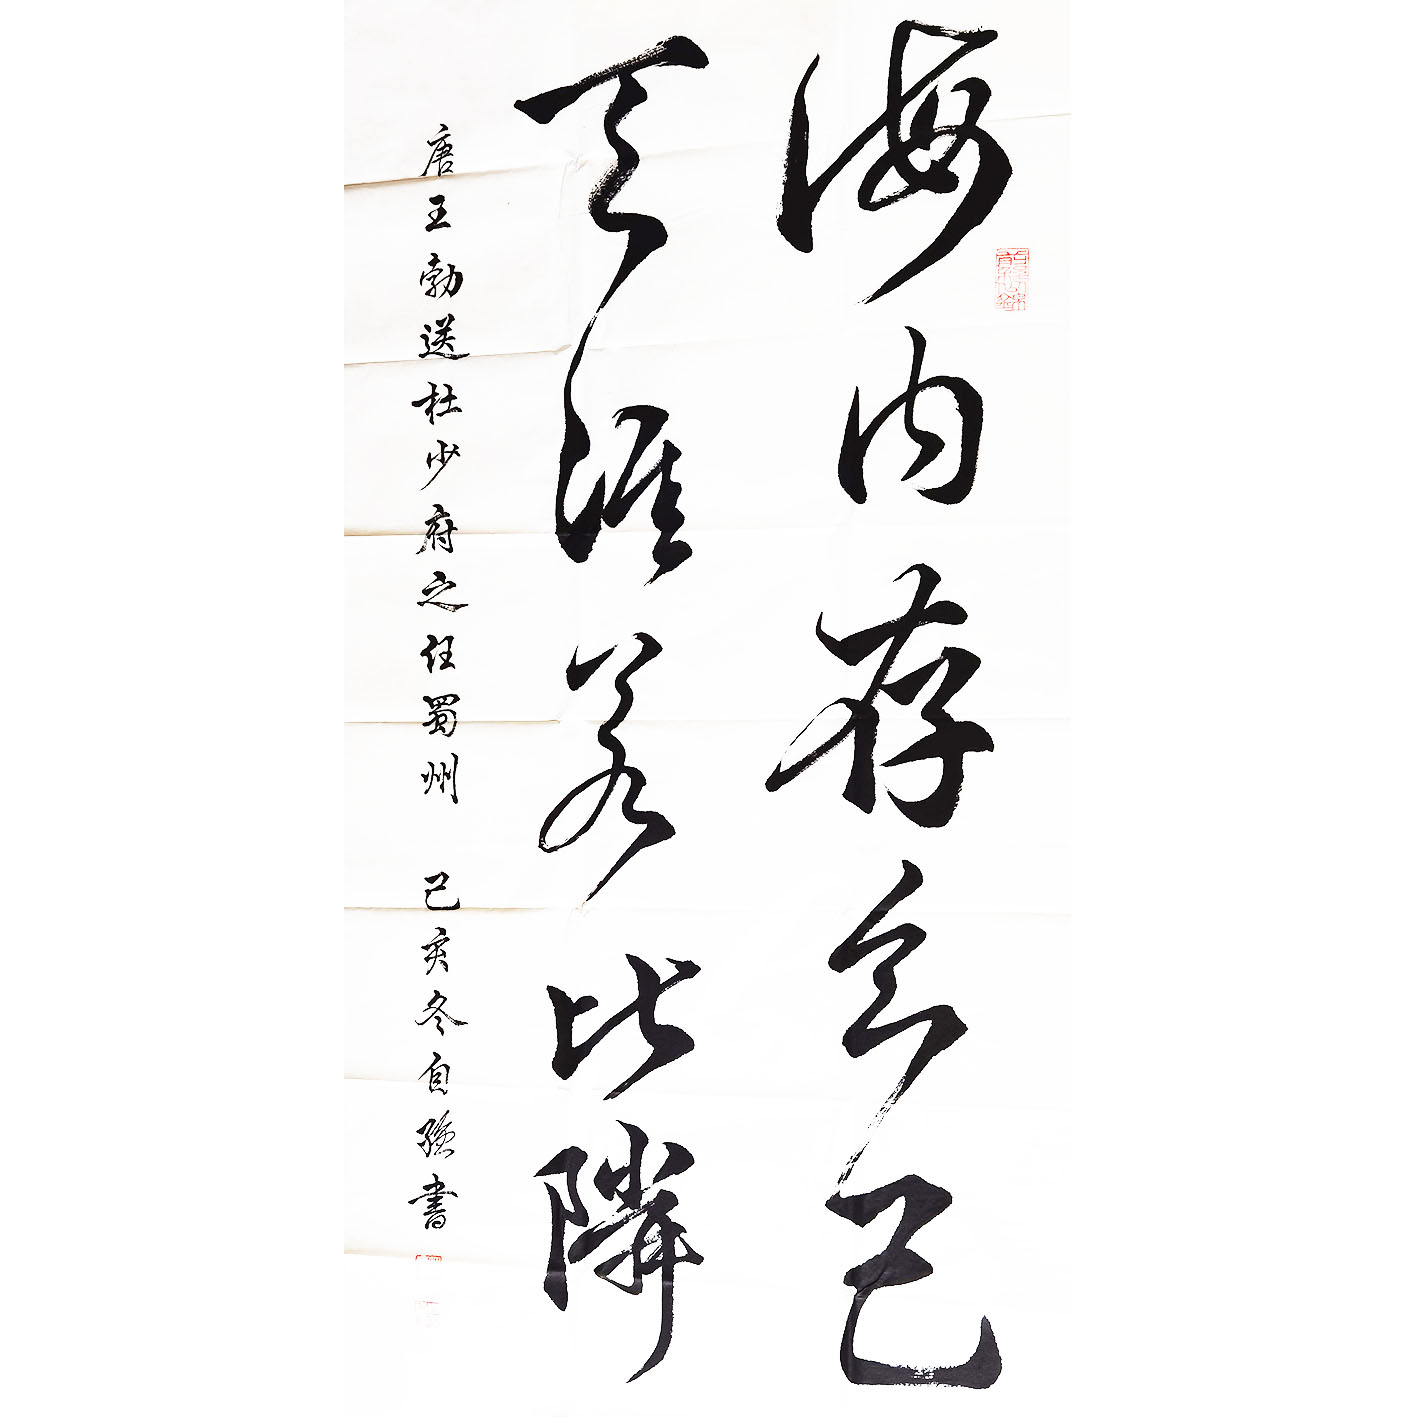 海内存知己
天涯若比隣
唐王勃送杜少府之任蜀州 己亥冬自強書